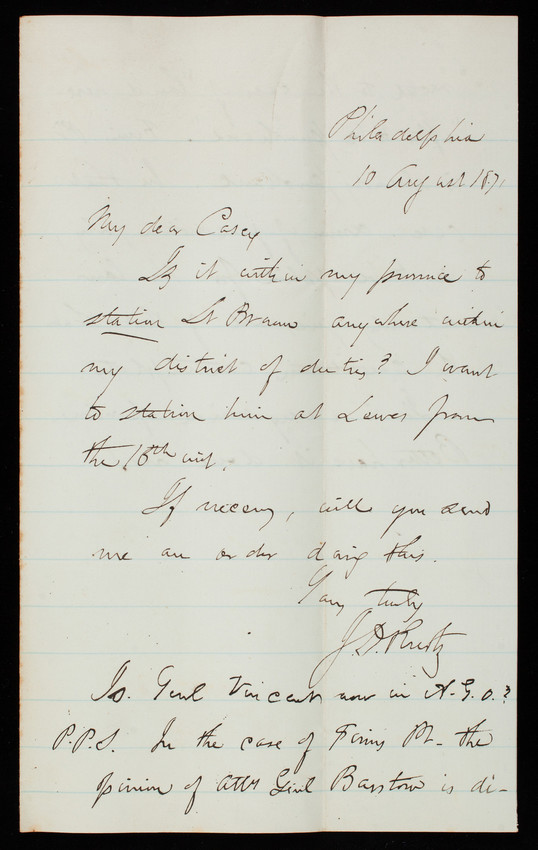 Philadelphia
10 August 1871
My dear Casey
Is it within my province to
station Lt Brown anywhere within
my district of duties? I want
to station him at Lewes from
the 10th inst.
If necessary, will you send
me an order doing this.
Yours truly
J. D. Kurtz
Is. Genl Vincent now in A.G.O.?
P.P.S. In the case of Finns Pt - the
opinion of Atty Genl Barstow is di-